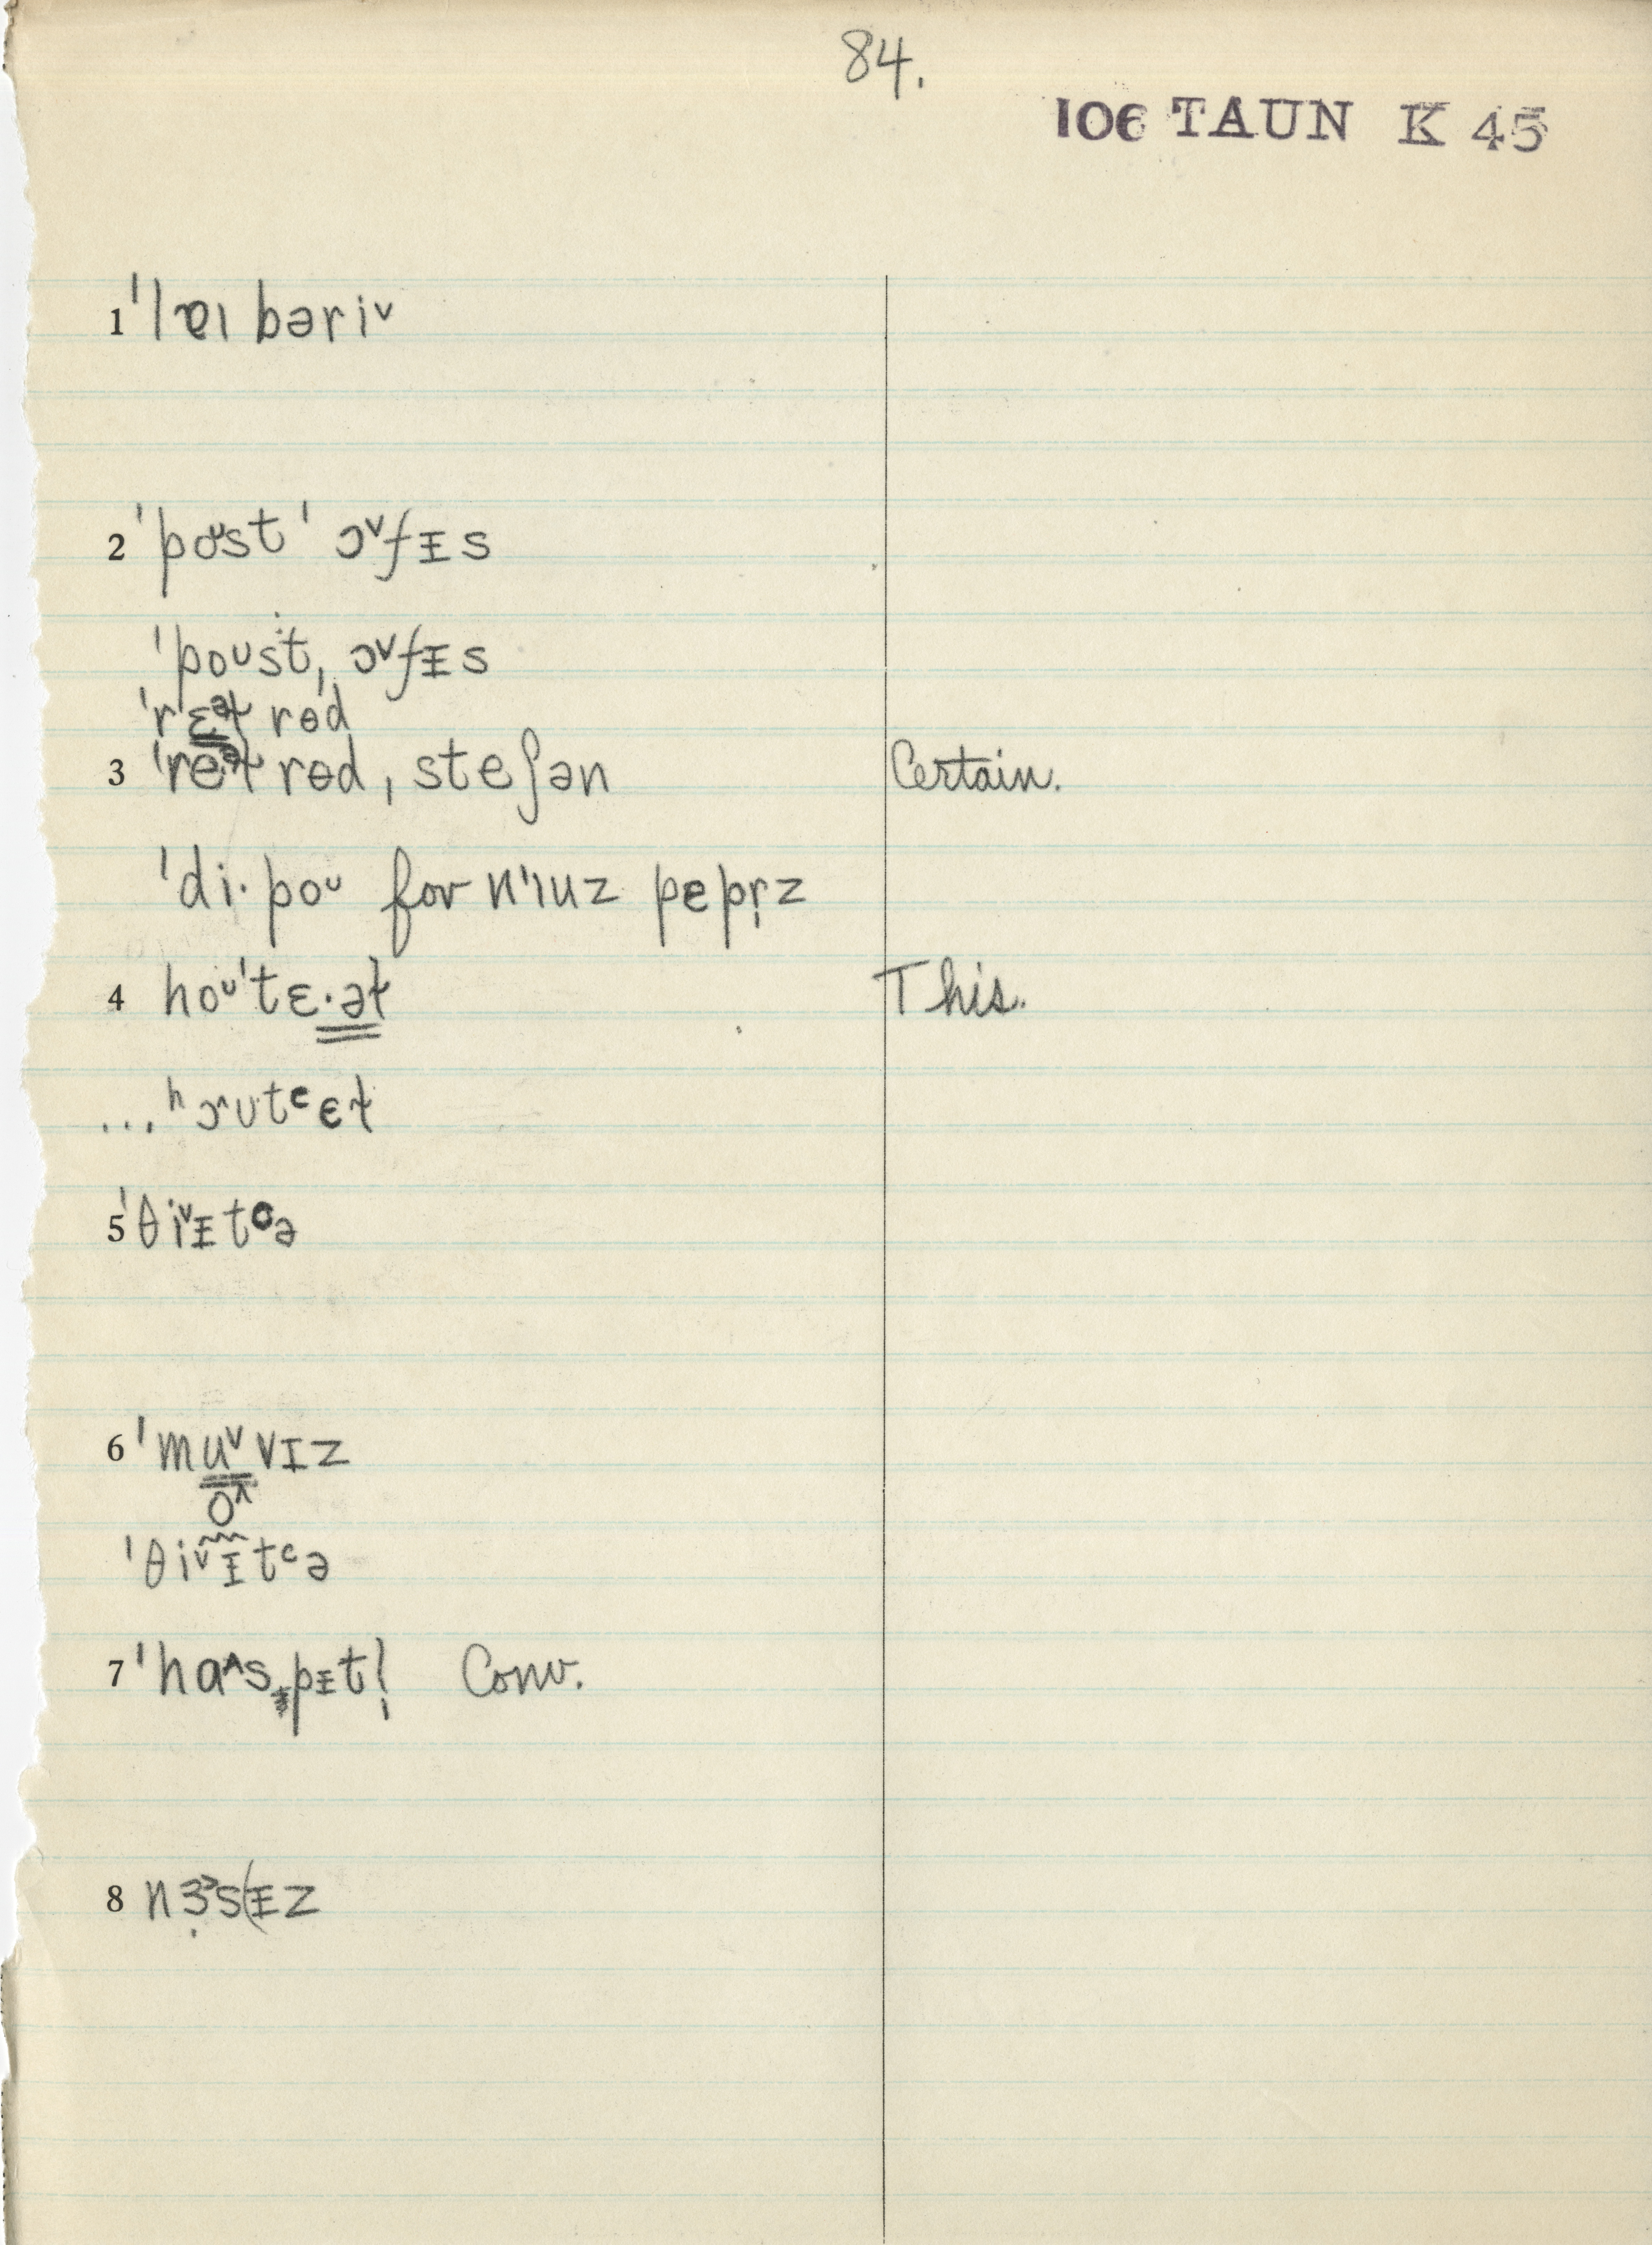 84.
106 TAUN K 45
1 ˈlɐɪbəri˅
2 ˈpoᴜst ˈɔ˅fɪ̵s
ˈpoᴜst ˌɔ˅fɪ̵s
ˈrɛəɫ rɵd
3 ˈreəɫ rɵd ˌsteʃən Certain.
ˈdi·poᴜ for nˈɪuz pepr̩z
4 hoᴜˈtɛ·əɫ This.
...ʰɔ˄ᴜtᶜɛɫ
5 ˈθi˅ɪ̵tᶜə
6 ˈmu˅vɪz
o˄
ˈθi˅ɪ̵tᶜə
7 ˈhɑ˄sˌpɪ̵tl̩ Conv.
8 nɜ˃s(ɪ̵z